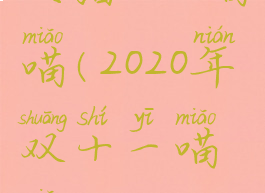 miāo nián
喵(2020年
shuāng shí yī miāo
双十一喵